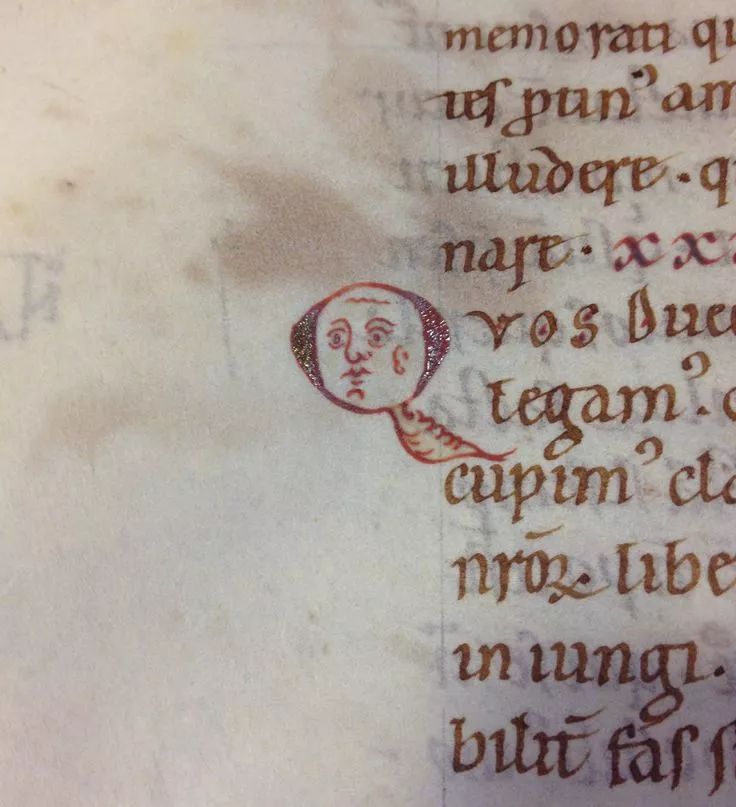 memorati qu
tes ptin᾽ am
illudere · qu
nare · xxx
Qvos duce
tegam᾽. c
cupim᾽ cla
nr̄oꝝ. libe
in iungi.
bilit̄ fas s